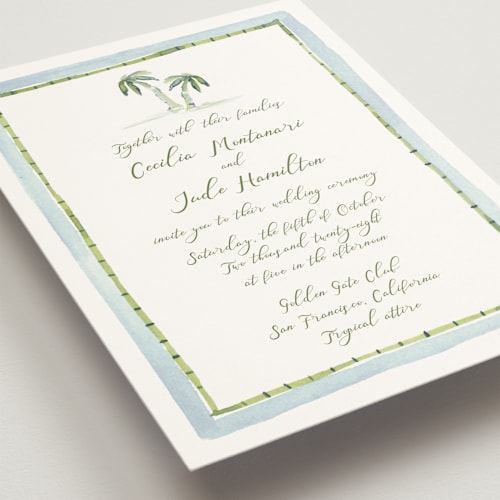 Together with their families
Cecilia Montanari
and
Jude Hamilton
invite you to their wedding ceremony
Saturday, the fifth of October
Two thousand twenty-eight
at five in the afternoon
Golden Gate Club
San Francis.co, California
Trypical attire